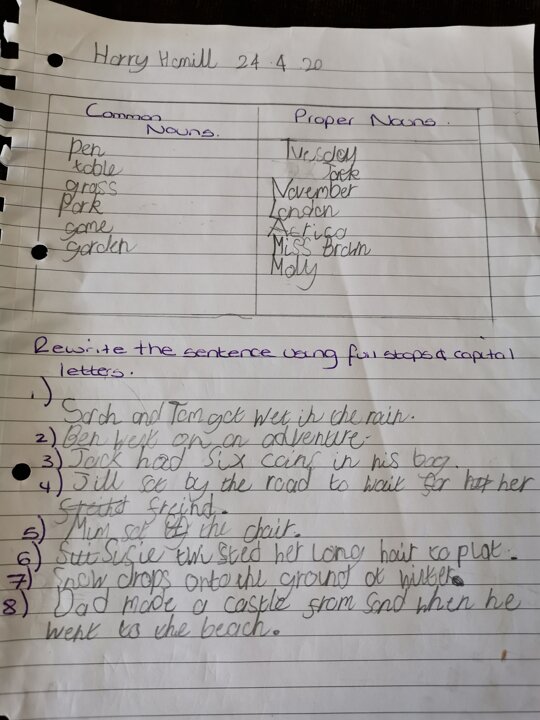 Harry Hamill 24.4.20
Common Nouns. Proper Nouns.
Pen Tuesday
table Jack
grass November
Park London
game Africa
Garden Miss Brown
Molly
Rewrite the sentence using full stops & capital
letters.
1)
Sarah and Tom got wet in the rain.
2) Ben went on an adventure.
3) Jack had six cans in his bag.
4) Jill sat by the road to wait for her
freind.
5) Mim sat the chair.
6) Susie twisted her long hair to plat.
7) Snow drops onto the ground at winter.
8) Dad made a castle from sand when he
went to the beach.